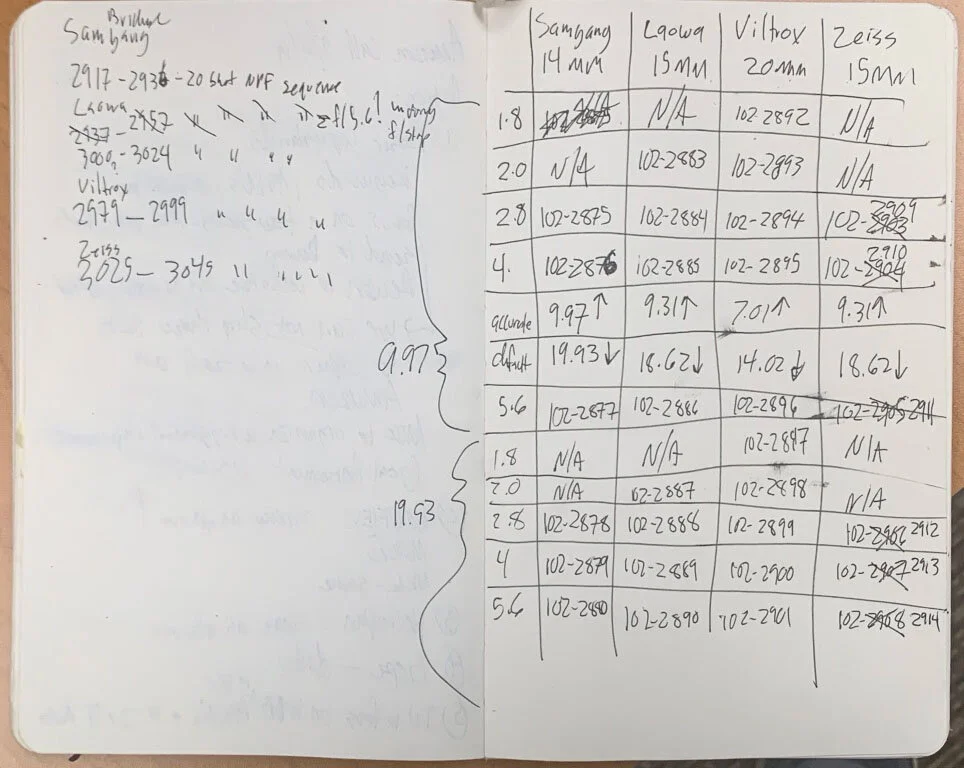 Samyang
2917-2936 - 20 shot NPF sequence
Laowa
2937 - 2957 \\ \\ \\ \\ = f/5.6! wrong f/stop
3000 - 3024 " " " "
Viltrox
2979 - 2999 " " " "
Zeiss
3025 - 3045 " " " " "
9.97
19.93
Samyang 14mm Laowa 15mm Viltrox 20mm Zeiss 15mm
1.8 N/A N/A 102-2892 N/A
2.0 N/A 102-2883 102-2893 N/A
2.8 102-2875 102-2884 102-2894 102-2903 2909
4. 102-2876 102-2885 102-2895 102-2904 2910
accurate 9.97↑ 9.31↑ 7.01↑ 9.31↑
default 19.93↓ 18.62↓ 14.02↓ 18.62↓
5.6 102-2877 102-2886 102-2896 102-2905 2911
1.8 N/A N/A 102-2897 N/A
2.0 N/A 102-2887 102-2898 N/A
2.8 102-2878 102-2888 102-2899 102-2906 2912
4 102-2879 102-2889 102-2900 102-2907 2913
5.6 102-2880 102-2890 102-2901 102-2908 2914